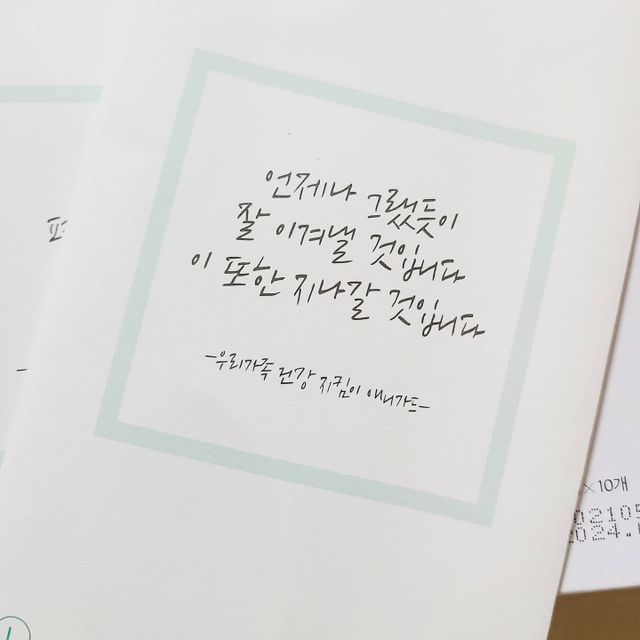 언제나 그랬듯이
잘 이겨낼 것입니다
이 또한 지나갈 것입니다
-우리가족 건강 지킴이 애니가드-
× 10개